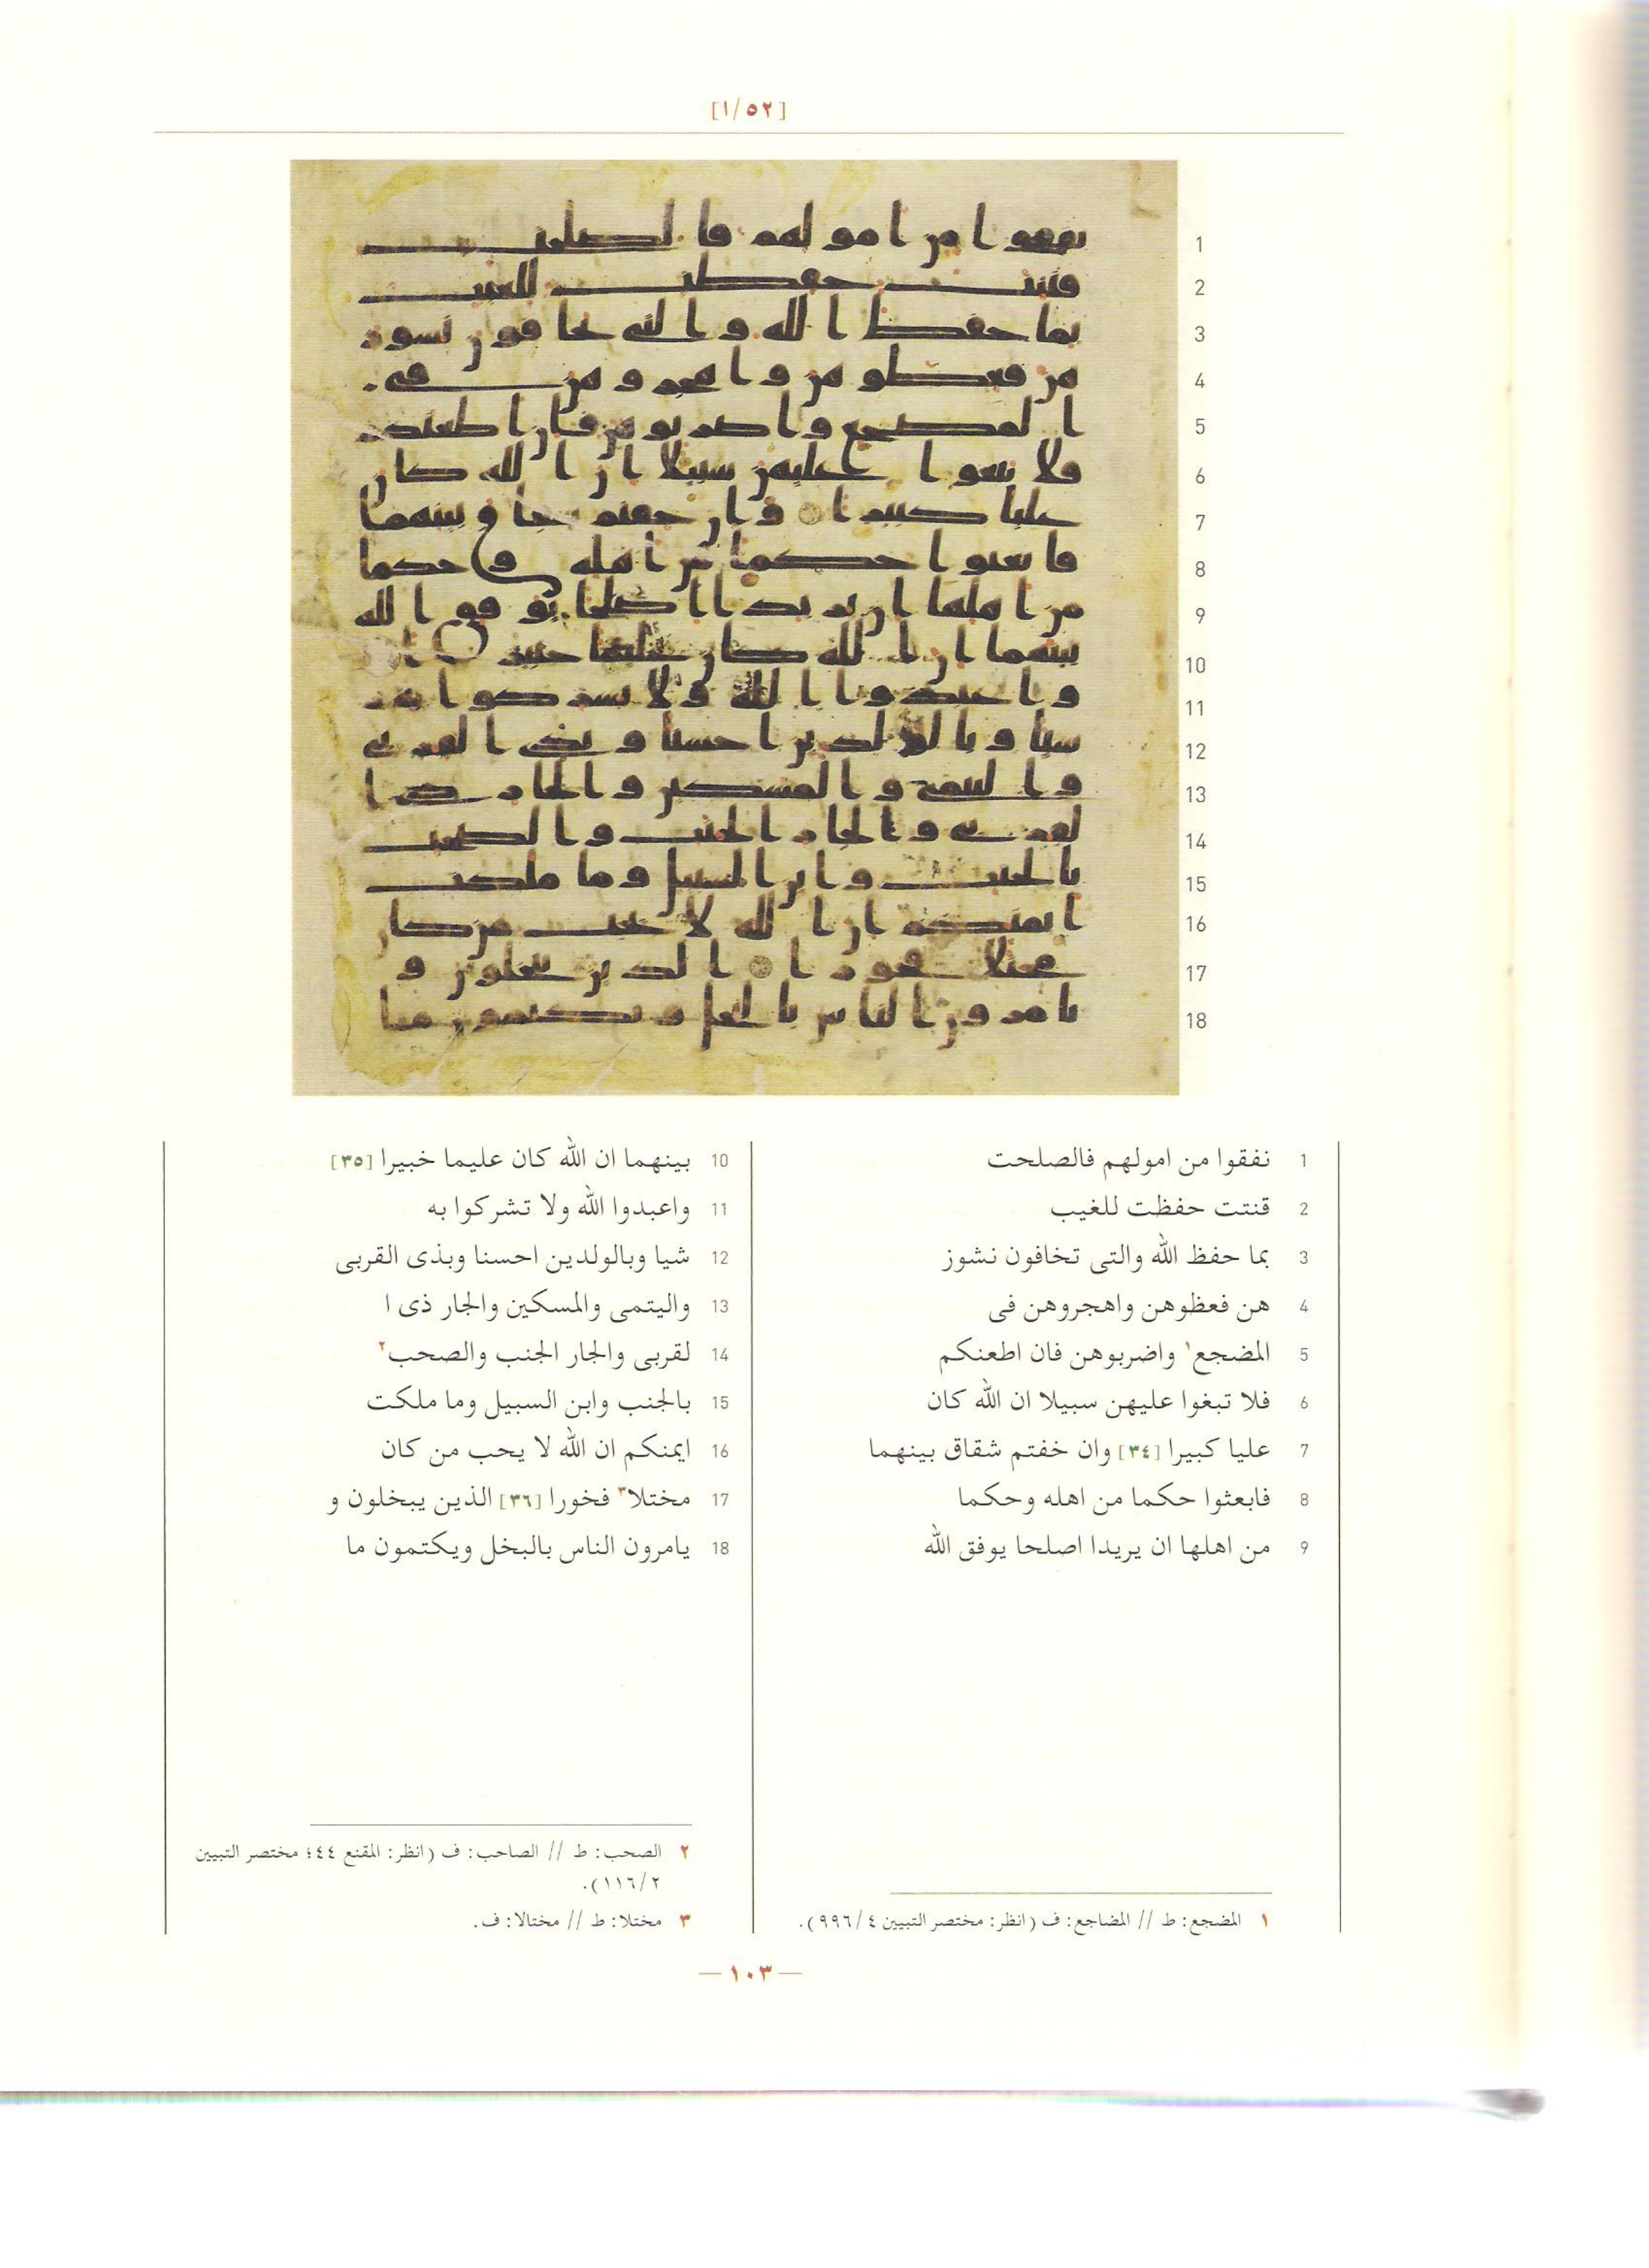 [١/٥٢]
1 نفقوا من امولهم فالصلحت
2 قنتت حفظت للغيب
3 بما حفظ الله والتى تخافون نشوز
4 هن فعظوهن واهجروهن فى
5 المضجع١ واضربوهن فان اطعنكم
6 فلا تبغوا عليهن سبيلا ان الله كان
7 عليا كبيرا [٣٤] وان خفتم شقاق بينهما
8 فابعثوا حكما من اهله وحكما
9 من اهلها ان يريدا اصلحا يوفق الله
١ المضجع: ط // المضاجع: ف (انظر: مختصر التبيين ٩٩٦/٤).
10 بينهما ان الله كان عليما خبيرا [٣٥]
11 واعبدوا الله ولا تشركوا به
12 شيا وبالولدين احسنا وبذى القربى
13 واليتمى والمسكين والجار ذى ا
14 لقربى والجار الجنب والصحب٢
15 بالجنب وابن السبيل وما ملكت
16 ايمنكم ان الله لا يحب من كان
17 مختلا٣ فخورا [٣٦] الذين يبخلون و
18 يامرون الناس بالبخل ويكتمون ما
٢ الصحب: ط // الصاحب: ف (انظر: المقنع ٤٤؛ مختصر التبيين
١١٦/٢).
٣ مختلا: ط // مختالا: ف.
— ١٠٣ —